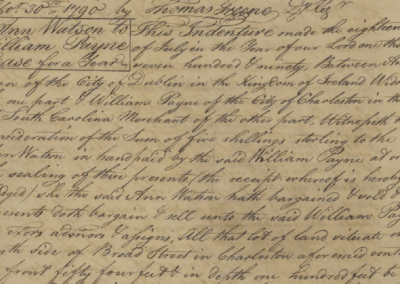 30th 1790 by Thomas
Ann Watson to This Indenture made the eighteen
William Payne of July in the Year of our Lord on tho
for a Year seven hundred & ninety, Between An
of the City of Dublin in the Kingdom of Ireland Wid
one part, & William Payne of the City of Charleston in th
South Carolina Merchant of the other part, Witnesseth
nsideration of the Sum of five shillings sterling to the
nn Watson in hand paid by the said William Payne at or
sealing of these presents, the receipt whereof is hereby
dged, she the said Ann Watson hath bargained & sold &
esents doth bargain & sell unto the said William Pay
exors admors & assigns, All that lot of land situate on
th side of Broad Street in Charleston aforesaid cont
front fifty four feet & in depth one hundred feet be